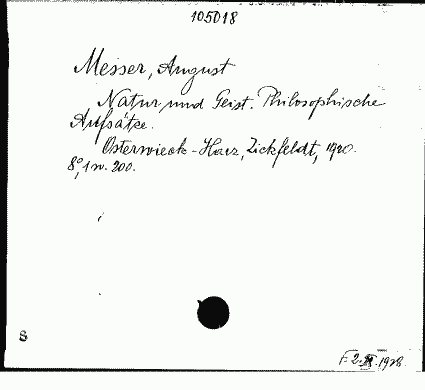 105018
Messer, August
Natur und Geist. Philosophische
Aufsätze.
Osterwieck-Harz, Zickfeldt, 1920.
8°, 1 w. 200.
8
F. 2. 1928